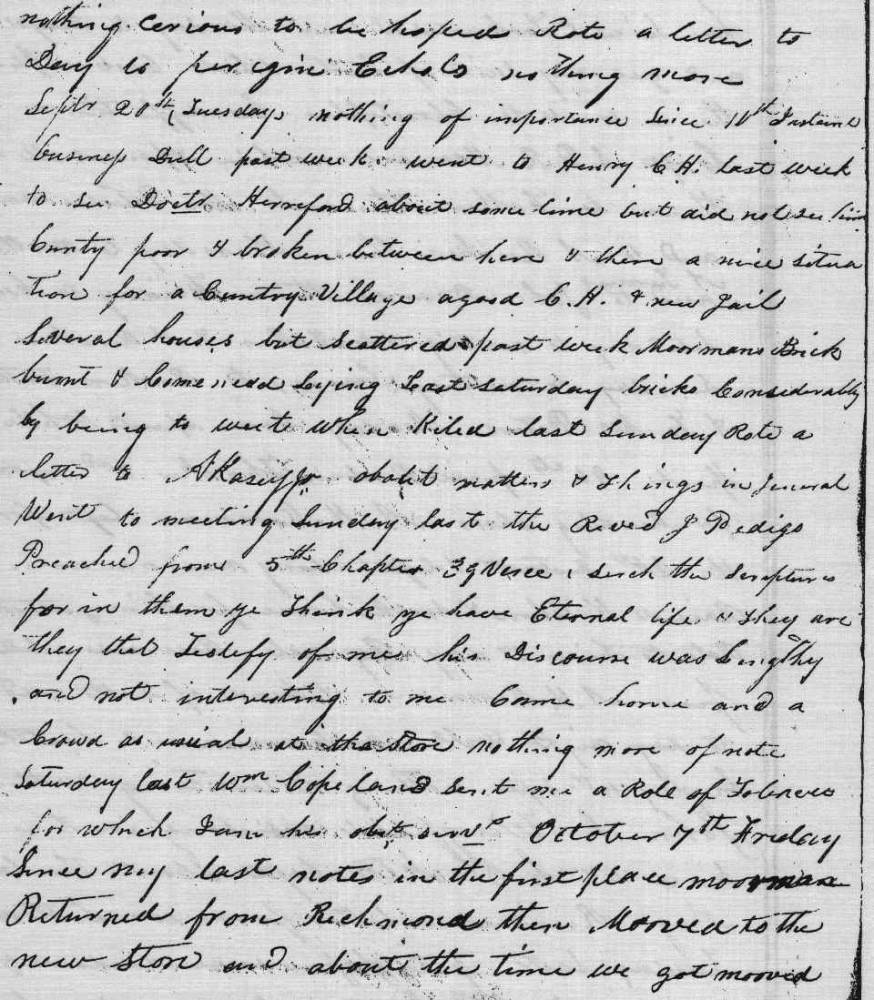 nothing cerious to be hoped Rote a letter to
Day to peregin Echols nothing more
Septr 20th Tuesday nothing of importance Since 10th Instane
business Dull past week went to Henry C H. last week
to see Doctr Hereford about some time but did not see him
Cunty poor & broken between here & there a nice situa
tion for a Cuntry Village a good C. H. & new Jail
Several houses but Scattered past week Moormans Brick
burnt & Comenced Lying Last Saturday bricks Considerably
by being to wett when Kiled last Sunday Rote a
letter to A Kasey Jr about matters & Things in Jeneral
Went to meeting Sunday last the Reved J Pedigo
Preached from 5th Chapter 39 Verce, serch the Scriptures
for in them ye Think ye have Eternal life & They are
they that Testify of me his Discourse was Lengthy
and not interesting to me Came home and a
Crowd as usial at the Store nothing more of note
Saturday last Wm Copeland Sent me a Role of Tobacco
for which I am his obt servt October 7th Friday
Since my last notes in the first place moorman
Returned from Richmond then Mooved to the
new Store and about the time we got mooved